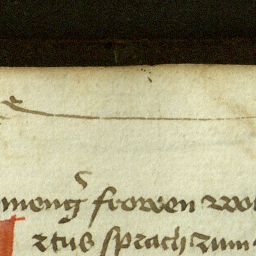 meng frowen wol
rtus sprach zum